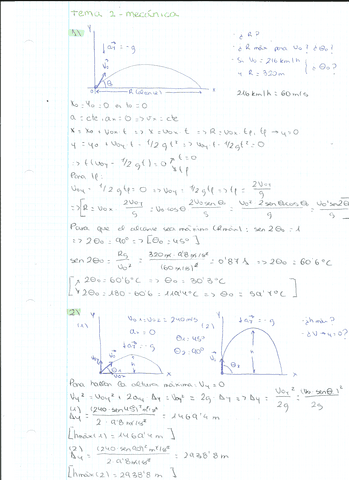 Tema 2 - mecánica
1)
y
↓ a⃗ = -g
V⃗₀
θ₀
R (alcance)
x
· ¿R?
· ¿R máx para v₀! ¿θ₀!
· Si V₀ = 216 km/h
→ R = 320m
¿θ₀?
216 km/h = 60 m/s
x₀ = y₀ = 0 en t₀ = 0
a = cte · aₓ = 0 => vₓ = cte
x = x₀ + v₀ₓ·t => x = v₀ₓ t => R = v₀ₓ tf, tf → y = 0
y = y₀ + v₀y·t - 1/2 g t² => v₀y t - 1/2 g t² = 0
=> t (v₀y - 1/2 g t) = 0
t = 0
tf
Para tf:
v₀y - 1/2 g tf = 0 => v₀y = 1/2 g tf => tf = 2v₀y/g
=> [R = v₀ₓ · 2v₀y/g = v₀ cosθ · 2v₀ senθ₀/g = v₀² 2 senθ₀ cosθ₀/g = v₀² sen2θ₀/g
Para que el alcance sea máximo (Rmáx): sen 2θ₀ = 1
=> 2θ₀ = 90° => [θ₀ = 45°]
sen 2θ₀ = Rg/v₀² = 320m · 9'8m/s²/(60m/s)² = 0'87 => 2θ₀ = 60'6°C
2θ₀ = 60'6°C => θ₀ = 30'3°C
2θ₀ = 180 - 60'6 = 119'4°C => θ₀ = 59'7°C
2)
(1)
V₀₁ = V₀₂ = 240 m/s
(2)
a₀ = 0
θ₁ = 45°
θ₂ = 90°
↓ a⃗ = -g
↓ a⃗ = -g
h
h
· ¿h máx?
Para hallar la altura máxima: Vy = 0
Vy² = V₀y² + 2ay Δy = V₀y² = 2g · Δy => Δy = V₀y²/2g = (V₀ senθ)²/2g
(1)
Δy = (240·sen45)² m²/s²/2·9'8 m/s² = 1469'4 m
[hmáx(1) = 1469'4 m]
(2)
Δy = (240·sen90)² m²/s²/2·9'8 m/s² = 2938'8 m
[hmáx(2) = 2938'8 m]